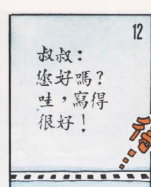 12
叔叔：
您好嗎？
哇，寫得
很好！